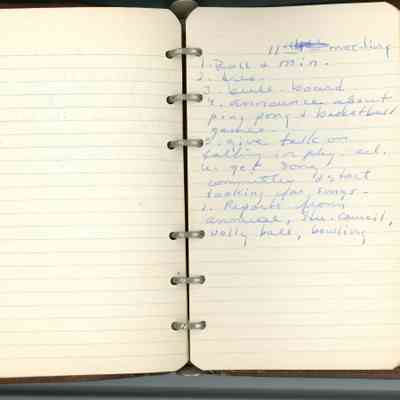 11 meeting
1. Roll & min.
2. tres.
3. bull. board
4. announce about
ping pong & basketball
games.
5. give talk on
falling in phy. ed.
6. get song
committee & start
looking for songs.
7. Reports from
annual, stu. council,
volly ball, bowling